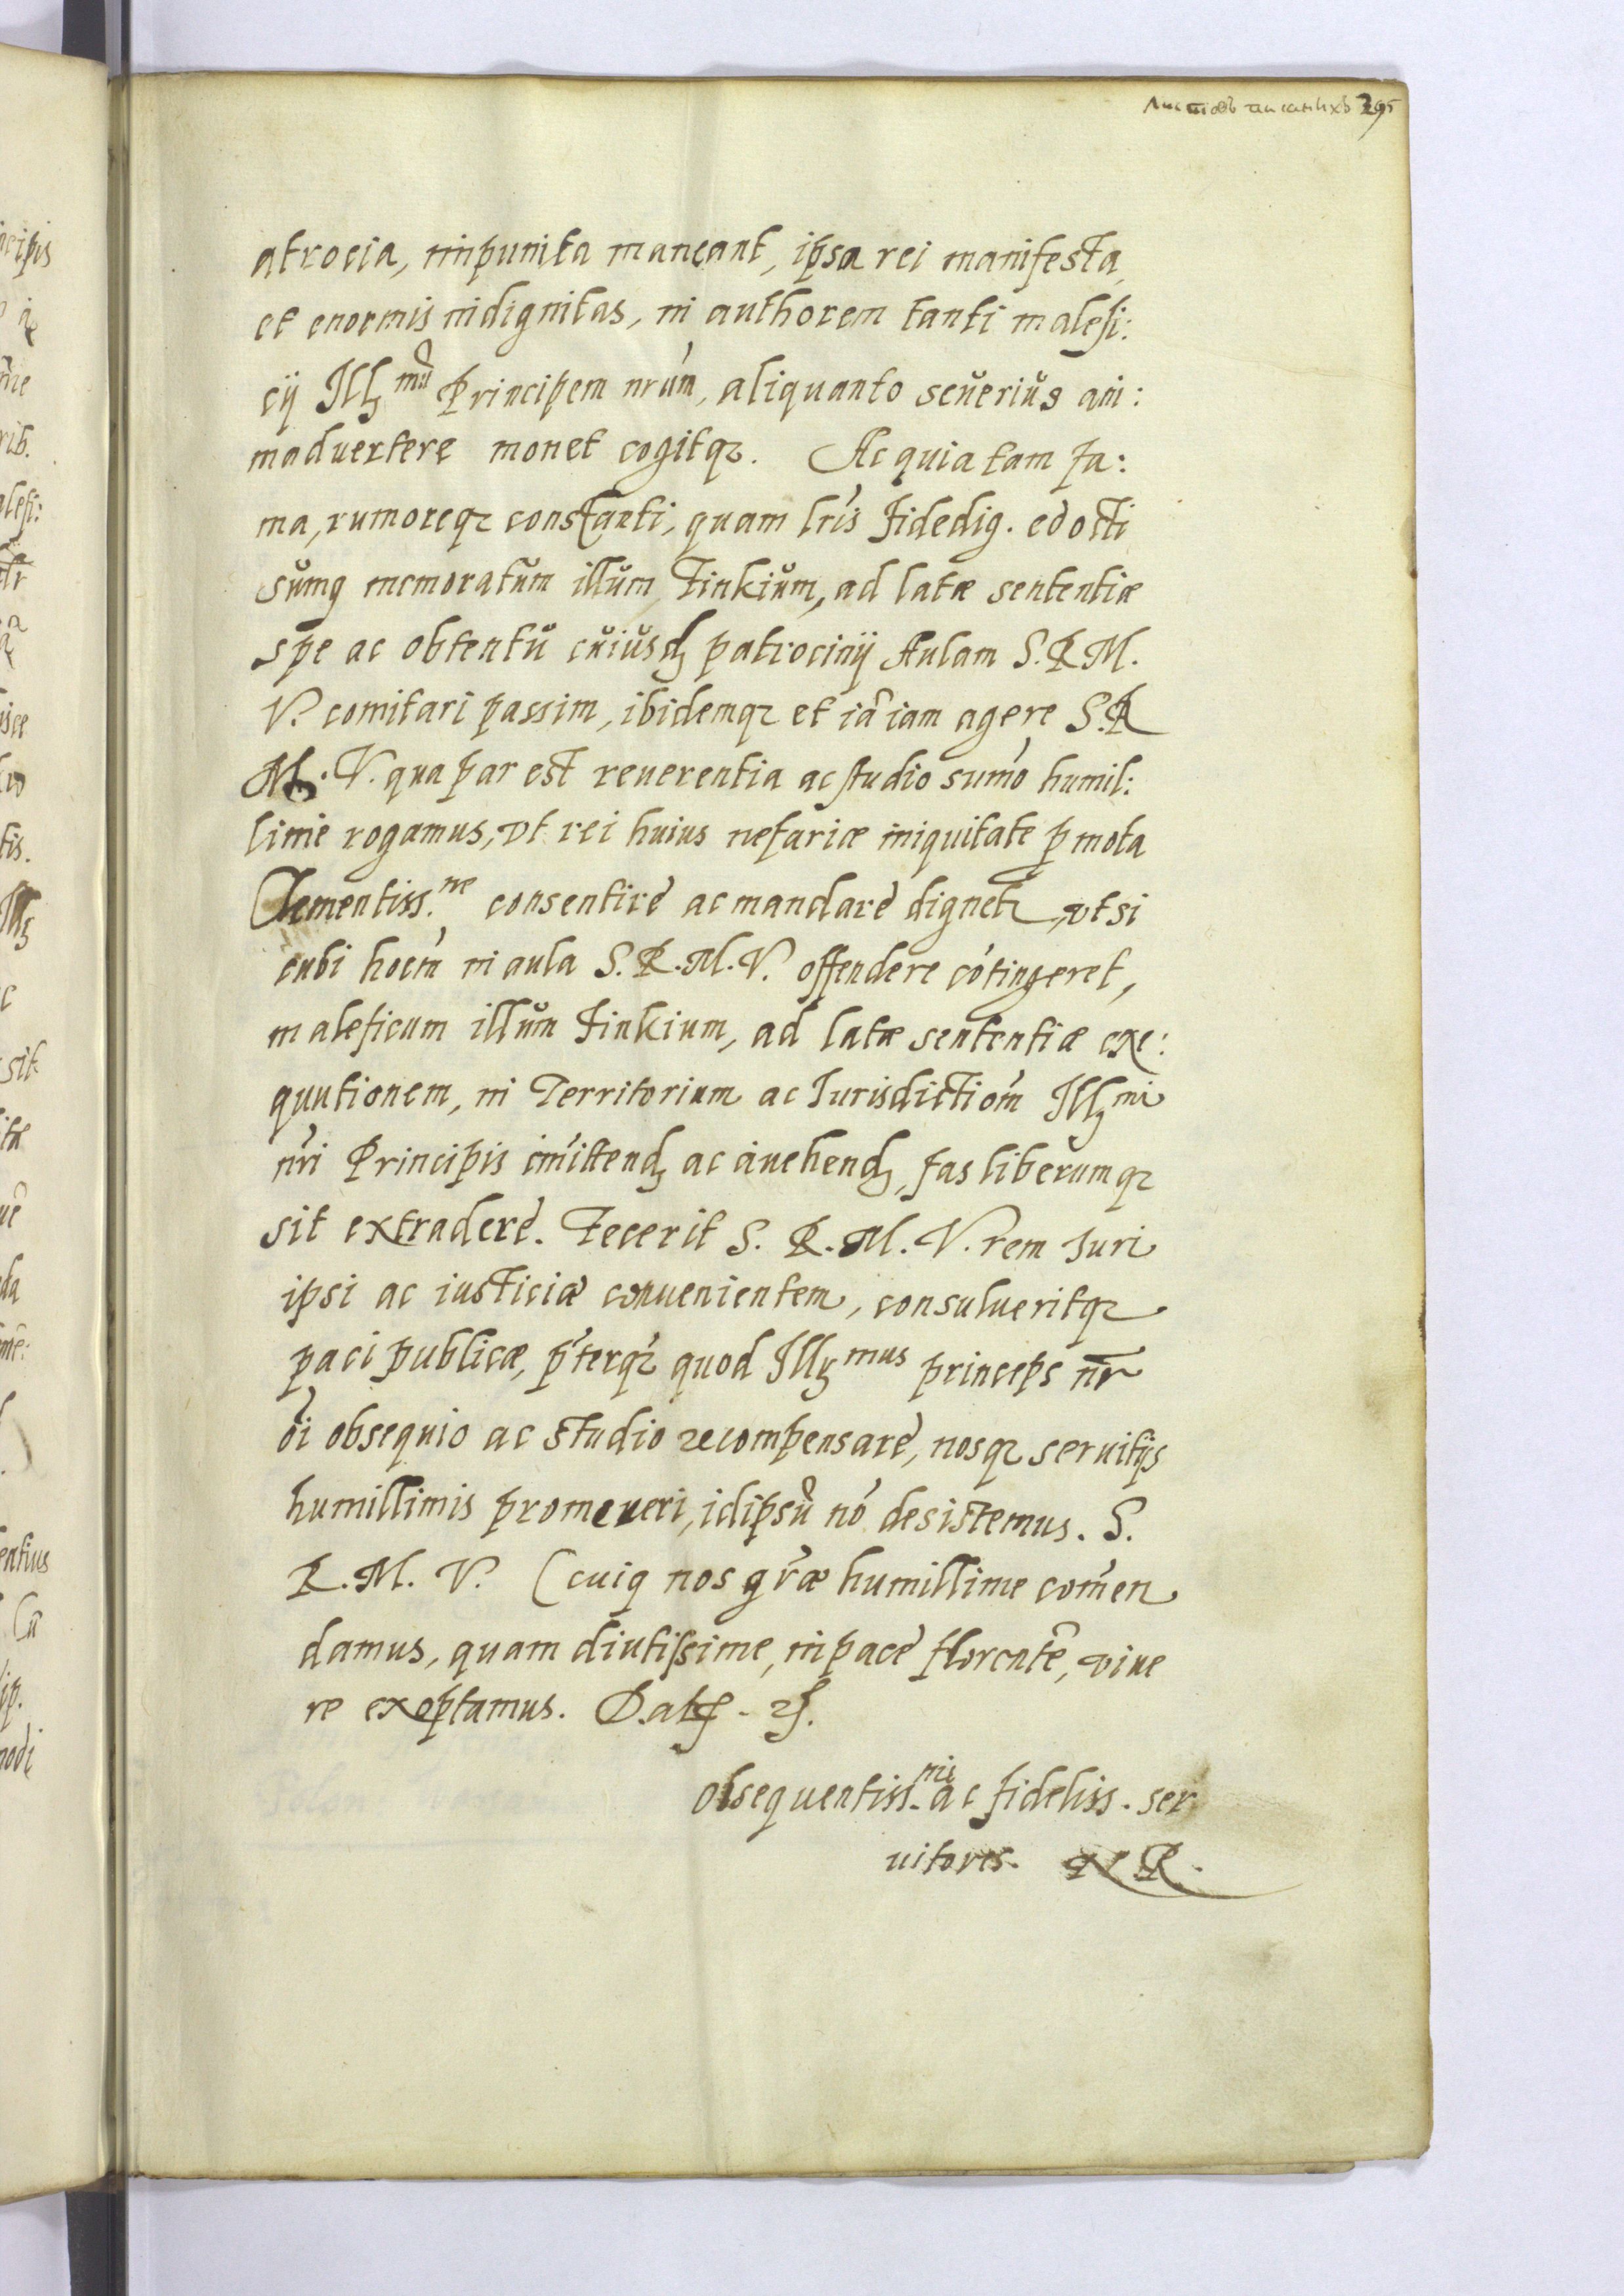 Листовъ писаныхъ 295
atrocia, impunita maneant, ipsa rei manifesta
et enormis indignitas, in authorem tanti malefi:
cij Illꝫmũ Principem nrúm, aliquanto seuerius ani:
maduertere monet cogitqꝫ. Ac quia tam fa:
ma, rumoreqꝫ constanti, quam lrís fidedig. edocti
sumꝰ memoratum illum Finkium, ad latæ sententiæ
spe ac obtentu cuiusdꝫ patrocinij Aulam S. R. M.
V. comitari passim, ibidemqꝫ et iã iam agere S. R
M. V. qua par est reuerentia ac studio sumó humil:
lime rogamus, vt rei huius nefariæ iniquitate ꝑmota
Clementiss.me consentiré ac mandaré dignetꝛ, vt si
cubi hoćm in aula S. R. M. V. offendere cótingeret,
maleficum illum Finkium, ad latæ sententiæ exe:
quutionem, in Territorium ac Iurisdictióm Illꝫmi
nrí Principis imíttendꝫ ac auehendꝫ, fas liberumqꝫ
sit extraderé. Fecerit S. R. M. V. rem Iuri
ipsi ac iusticiæ conuenientem, consulueritqꝫ
paci publicæ, ṕterqꝫ́ quod Illꝫmus princeps nr̃
oĩ obsequio ac studio recompensaré, nosqꝫ seruitijs
humillimis promereri, idipsũ nó desistemus. S.
R. M. V. (cuiꝰ nos gráæ humillime comén
damus, quam diutissime, in pacé florentẽ, viue
re exoptamus. Datꝭ. ꝛꝭ.
Obsequentiss.mi ac fideliss. ser
uitores. N R.